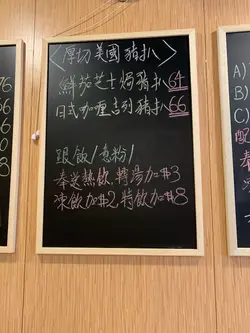 <厚切美國豬扒>
鮮茄芝士焗豬扒64
日式咖喱吉列豬扒66
跟飯/意粉/
奉送熱飲,轉湯加#3
凍飲加#2,特飲加#8
76
66
6
0
8
A)
B)
C)